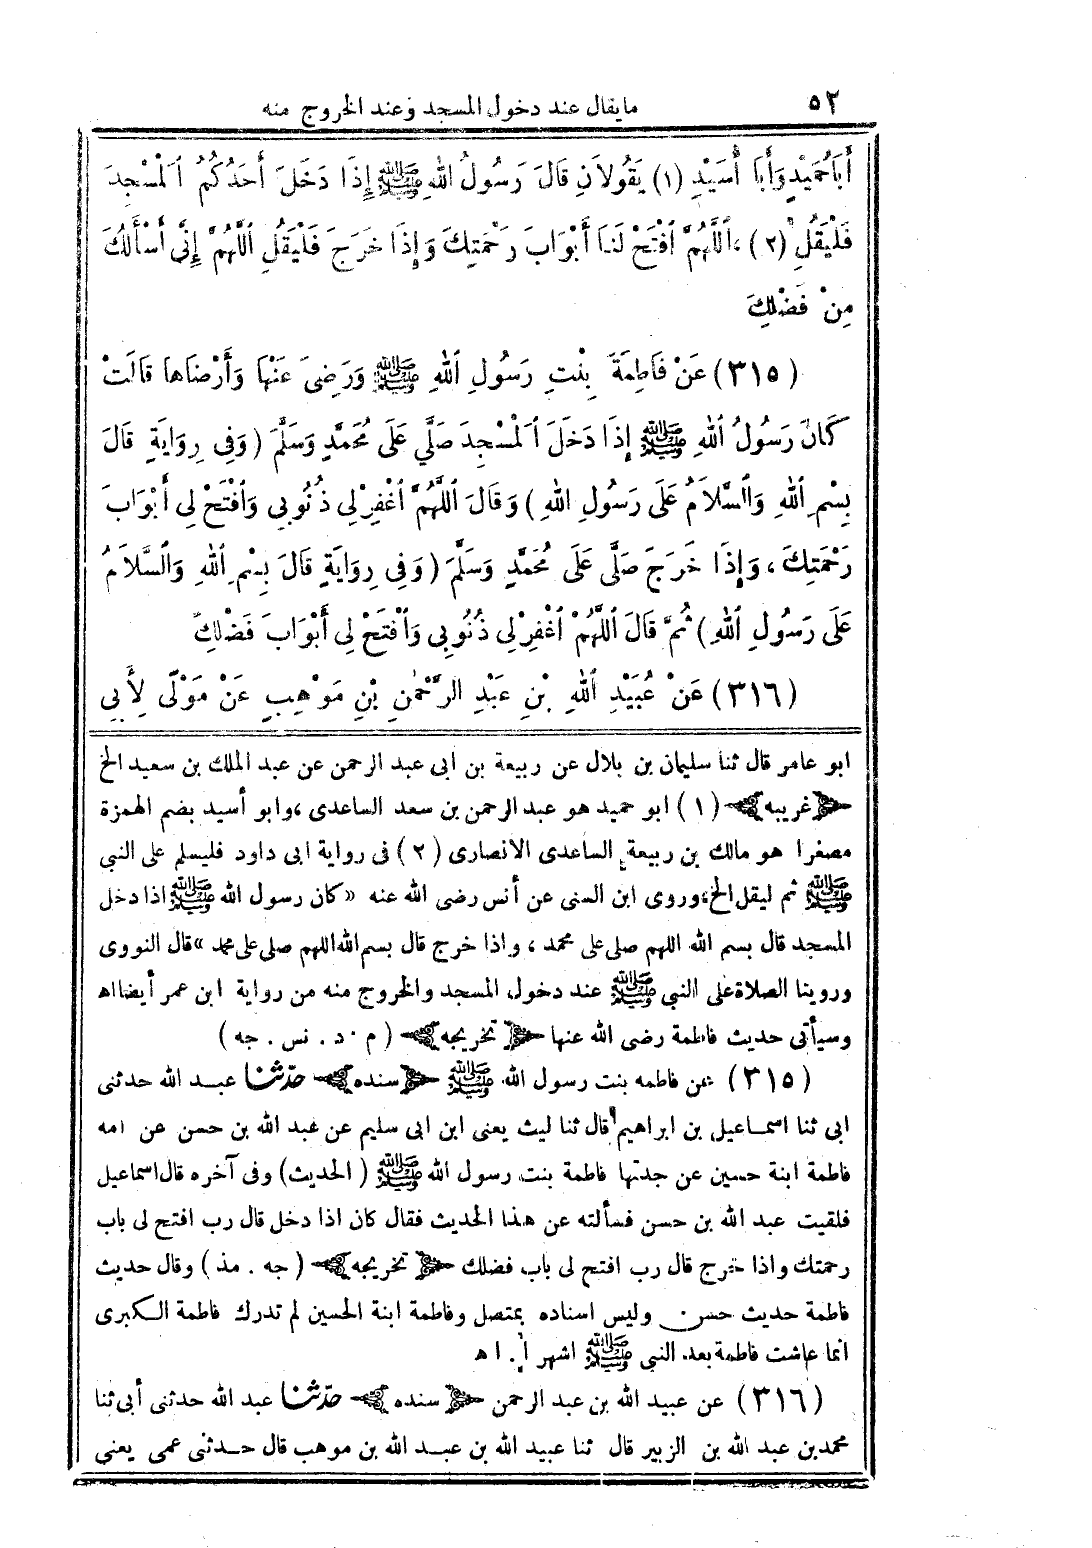 ٥٢
مايقال عند دخول المسجد وعند الخروج منه
أَبَاحُمَيْدٍ وَأَبَا أُسَيْدٍ (١) يَقُولاَنِ قَالَ رَسُولُ اللهِ ﷺ إِذَا دَخَلَ أَحَدُكُمُ ٱلْمَسْجِدَ
فَلْيَقُلِ (٢) ، ٱللَّهُمَّ ٱفْتَحْ لَنَا أَبْوَابَ رَحْمَتِكَ وَإِذَا خَرَجَ فَلْيَقُلِ ٱللَّهُمَّ إِنِّى أَسْأَلُكَ
مِنْ فَضْلِكَ
(٣١٥) عَنْ فَاطِمَةَ بِنْتِ رَسُولِ ٱللهِ ﷺ وَرَضِىَ عَنْهَا وَأَرْضَاهَا قَالَتْ
كَانَ رَسُولُ ٱللهِ ﷺ إِذَا دَخَلَ ٱلْمَسْجِدَ صَلَّي عَلَى مُحَمَّدٍ وَسَلَّمَ (وَفِى رِوَايَةٍ قَالَ
بِسْمِ ٱللهِ وَٱلسَّلاَمُ عَلَى رَسُولِ اللهِ) وَقَالَ ٱللَّهُمَّ ٱغْفِرْلِى ذُنُوبِى وَٱفْتَحْ لِى أَبْوَابَ
رَحْمَتِكَ ، وَإِذَا خَرَجَ صَلَّى عَلَى مُحَمَّدٍ وَسَلَّمَ (وَفِى رِوَايَةٍ قَالَ بِسْمِ ٱللهِ وَٱلسَّلاَمُ
عَلَى رَسُولِ ٱللهِ) ثُمَّ قَالَ ٱللَّهُمَّ ٱغْفِرْلِى ذُنُوبِى وَٱفْتَحْ لِى أَبْوَابَ فَضْلِكَ
(٣١٦) عَنْ عُبَيْدِ ٱللهِ بْنِ عَبْدِ الرَّحْمٰنِ بْنِ مَوْهِبٍ عَنْ مَوْلًى لِأَبِى
ابو عامر قال ثنا سليمان بن بلال عن ربيعة بن ابى عبد الرحمن عن عبد الملك بن سعيد الخ
﴿غريبه﴾ (١) ابو حميد هو عبد الرحمن بن سعد الساعدى ،وابو أسيد بضم الهمزة
مصغرا هو مالك بن ربيعة الساعدى الانصارى (٢) فى رواية ابى داود فليسلم على النبي
ﷺ ثم ليقل الخ،وروى ابن السنى عن أنس رضى الله عنه «كان رسول الله ﷺ اذا دخل
المسجد قال بسم الله اللهم صلى على محمد ، واذا خرج قال بسم الله اللهم صلى على محمد »قال النووى
وروينا الصلاة على النبي ﷺ عند دخول المسجد والخروج منه من رواية ابن عمر أيضا اه
وسيأتى حديث فاطمة رضى الله عنها ﴿تخريجه﴾ (م . د . نس . جه)
(٣١٥) عن فاطمه بنت رسول الله ﷺ ﴿سنده﴾ حدّثنا عبد الله حدثنى
ابى ثنا اسماعيل بن ابراهيم قال ثنا ليث يعنى ابن ابى سليم عن عبد الله بن حسن عن امه
فاطمة ابنة حسين عن جدتها فاطمة بنت رسول الله ﷺ (الحديث) وفى آخره قال اسماعيل
فلقيت عبد الله بن حسن فسألته عن هذا الحديث فقال كان اذا دخل قال رب افتح لى باب
رحمتك واذا خرج قال رب افتح لى باب فضلك ﴿تخريجه﴾ (جه . مذ) وقال حديث
فاطمة حديث حسن وليس اسناده بمتصل وفاطمة ابنة الحسين لم تدرك فاطمة الكبرى
انما عاشت فاطمة بعد النبي ﷺ اشهر ا. اه
(٣١٦) عن عبيد الله بن عبد الرحمن ﴿سنده﴾ حدّثنا عبد الله حدثنى أبى ثنا
محمد بن عبد الله بن الزبير قال ثنا عبيد الله بن عبد الله بن موهب قال حدثنى عمى يعنى